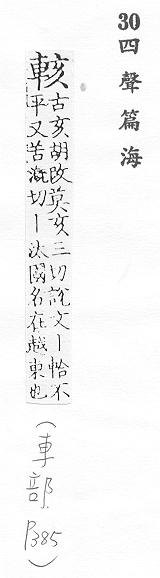 30四聲篇海
輆
古亥胡改莫亥三切說文丨恰不
平又苦漑切丨沐國名在越東也
(車部.P385)